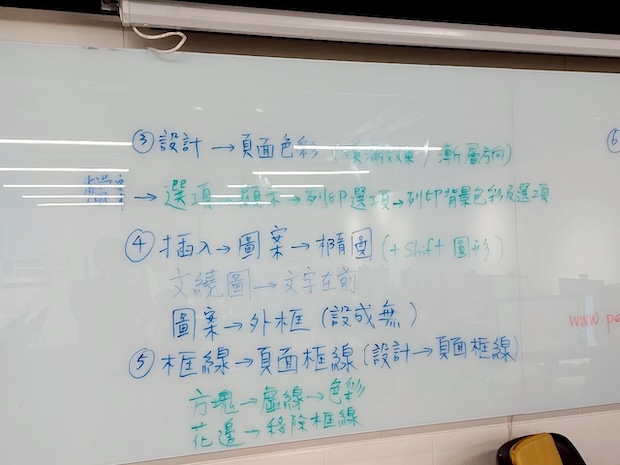 ③ 設計 → 頁面色彩 (填滿效果 / 漸層方向)
→ 選項 → 顯示 → 列印選項 → 列印背景色彩及選項
④ 插入 → 圖案 → 橢圓 (+ Shift 圓形)
文繞圖 → 文字在前
圖案 → 外框 (設成無)
⑤ 框線 → 頁面框線 (設計 → 頁面框線)
方塊 → 虛線 → 色彩
花邊 → 移除框線
⑥
www.pe